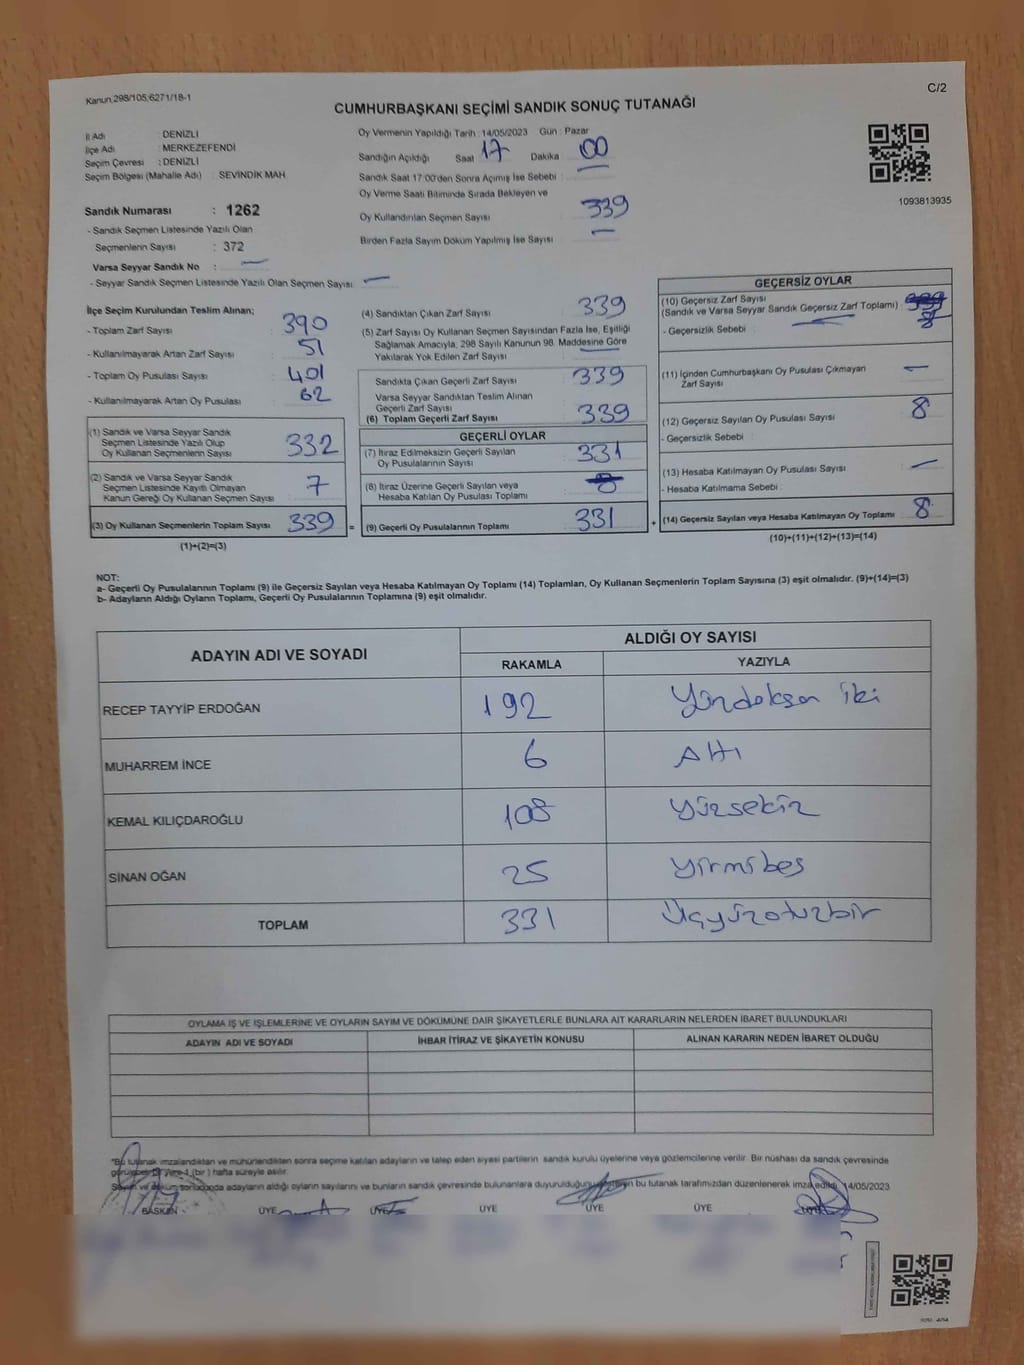 Kanun;298/105;6271/18-1
C/2
CUMHURBAŞKANI SEÇİMİ SANDIK SONUÇ TUTANAĞI
İl Adı : DENİZLİ
İlçe Adı : MERKEZEFENDİ
Seçim Çevresi : DENİZLİ
Seçim Bölgesi (Mahalle Adı) : SEVİNDİK MAH
Sandık Numarası : 1262
- Sandık Seçmen Listesinde Yazılı Olan
Seçmenlerin Sayısı : 372
Varsa Seyyar Sandık No : —
- Seyyar Sandık Seçmen Listesinde Yazılı Olan Seçmen Sayısı : —
Oy Vermenin Yapıldığı Tarih : 14/05/2023 Gün : Pazar
Sandığın Açıldığı Saat : 17 Dakika : 00
Sandık Saat 17:00'den Sonra Açımış İse Sebebi :
Oy Verme Saati Bitiminde Sırada Bekleyen ve
Oy Kullandırılan Seçmen Sayısı : 339
Birden Fazla Sayım Döküm Yapılmış İse Sayısı : —
1093813935
İlçe Seçim Kurulundan Teslim Alınan;
- Toplam Zarf Sayısı : 390
- Kullanılmayarak Artan Zarf Sayısı : 51
- Toplam Oy Pusulası Sayısı : 401
- Kullanılmayarak Artan Oy Pusulası : 62
(1) Sandık ve Varsa Seyyar Sandık
Seçmen Listesinde Yazılı Olup
Oy Kullanan Seçmenlerin Sayısı : 332
(2) Sandık ve Varsa Seyyar Sandık
Seçmen Listesinde Kayıtlı Olmayan
Kanun Gereği Oy Kullanan Seçmen Sayısı : 7
(3) Oy Kullanan Seçmenlerin Toplam Sayısı : 339 =
(1)+(2)=(3)
(4) Sandıktan Çıkan Zarf Sayısı : 339
(5) Zarf Sayısı Oy Kullanan Seçmen Sayısından Fazla İse, Eşitliği
Sağlamak Amacıyla; 298 Sayılı Kanunun 98. Maddesine Göre
Yakılarak Yok Edilen Zarf Sayısı : —
Sandıkta Çıkan Geçerli Zarf Sayısı : 339
Varsa Seyyar Sandıktan Teslim Alınan
Geçerli Zarf Sayısı :
(6) Toplam Geçerli Zarf Sayısı : 339
GEÇERLİ OYLAR
(7) İtiraz Edilmeksizin Geçerli Sayılan
Oy Pusulalarının Sayısı : 331
(8) İtiraz Üzerine Geçerli Sayılan veya
Hesaba Katılan Oy Pusulası Toplamı :
(9) Geçerli Oy Pusulalarının Toplamı : 331 +
GEÇERSİZ OYLAR
(10) Geçersiz Zarf Sayısı
(Sandık ve Varsa Seyyar Sandık Geçersiz Zarf Toplamı) :
- Geçersizlik Sebebi : —
(11) İçinden Cumhurbaşkanı Oy Pusulası Çıkmayan
Zarf Sayısı : —
(12) Geçersiz Sayılan Oy Pusulası Sayısı : 8
- Geçersizlik Sebebi :
(13) Hesaba Katılmayan Oy Pusulası Sayısı : —
- Hesaba Katılmama Sebebi :
(14) Geçersiz Sayılan veya Hesaba Katılmayan Oy Toplamı : 8
(10)+(11)+(12)+(13)=(14)
NOT:
a- Geçerli Oy Pusulalarının Toplamı (9) ile Geçersiz Sayılan veya Hesaba Katılmayan Oy Toplamı (14) Toplamları, Oy Kullanan Seçmenlerin Toplam Sayısına (3) eşit olmalıdır. (9)+(14)=(3)
b- Adayların Aldığı Oyların Toplamı, Geçerli Oy Pusulalarının Toplamına (9) eşit olmalıdır.
ADAYIN ADI VE SOYADI ALDIĞI OY SAYISI
RAKAMLA YAZIYLA
RECEP TAYYİP ERDOĞAN 192 Yüzdoksan iki
MUHARREM İNCE 6 Altı
KEMAL KILIÇDAROĞLU 108 Yüzsekiz
SİNAN OĞAN 25 Yirmibeş
TOPLAM 331 Üçyüzotuzbir
OYLAMA İŞ VE İŞLEMLERİNE VE OYLARIN SAYIM VE DÖKÜMÜNE DAİR ŞİKAYETLERLE BUNLARA AİT KARARLARIN NELERDEN İBARET BULUNDUKLARI
ADAYIN ADI VE SOYADI İHBAR İTİRAZ VE ŞİKAYETİN KONUSU ALINAN KARARIN NEDEN İBARET OLDUĞU
*Bu tutanak imzalandıktan ve mühürlendikten sonra seçime katılan adayların ve talep eden siyasi partilerin sandık kurulu üyelerine veya gözlemcilerine verilir. Bir nüshası da sandık çevresinde
görülebilir bir yere 1 (bir ) hafta süreyle asılır.
Sayım ve döküm sonucunda adayların aldığı oyların sayılarını ve bunların sandık çevresinde bulunanlara duyurulduğunu gösteren bu tutanak tarafımızdan düzenlenerek imza edildi. 14/05/2023
BAŞKAN ÜYE ÜYE ÜYE ÜYE ÜYE